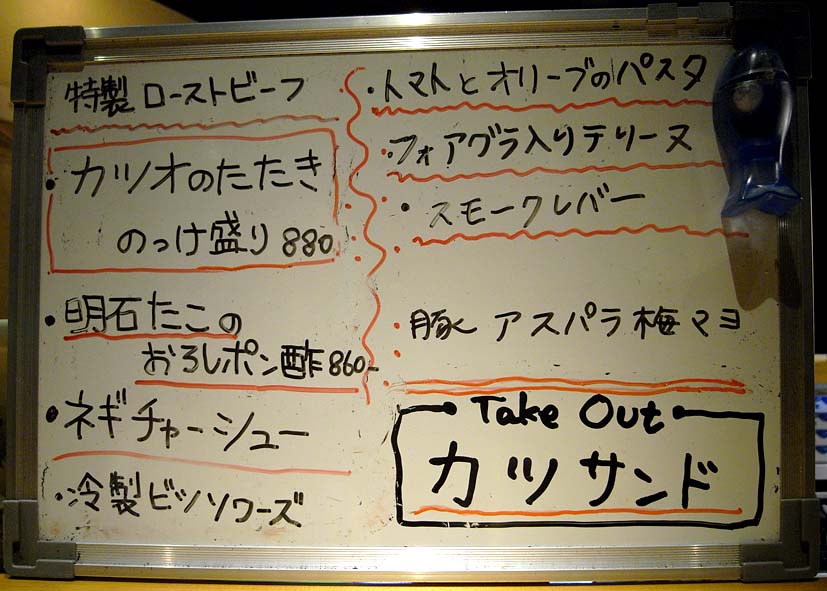 特製 ローストビーフ
・カツオのたたき
のっけ盛り 880
・明石たこの
おろしポン酢 860-
・ネギチャーシュー
・冷製ビシソワーズ
・トマトとオリーブのパスタ
・フォアグラ入りテリーヌ
・スモークレバー
・豚 アスパラ梅マヨ
Take Out
カツサンド